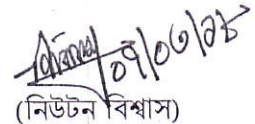 ০৭/০৩/১৮
(নিউটন বিশ্বাস)